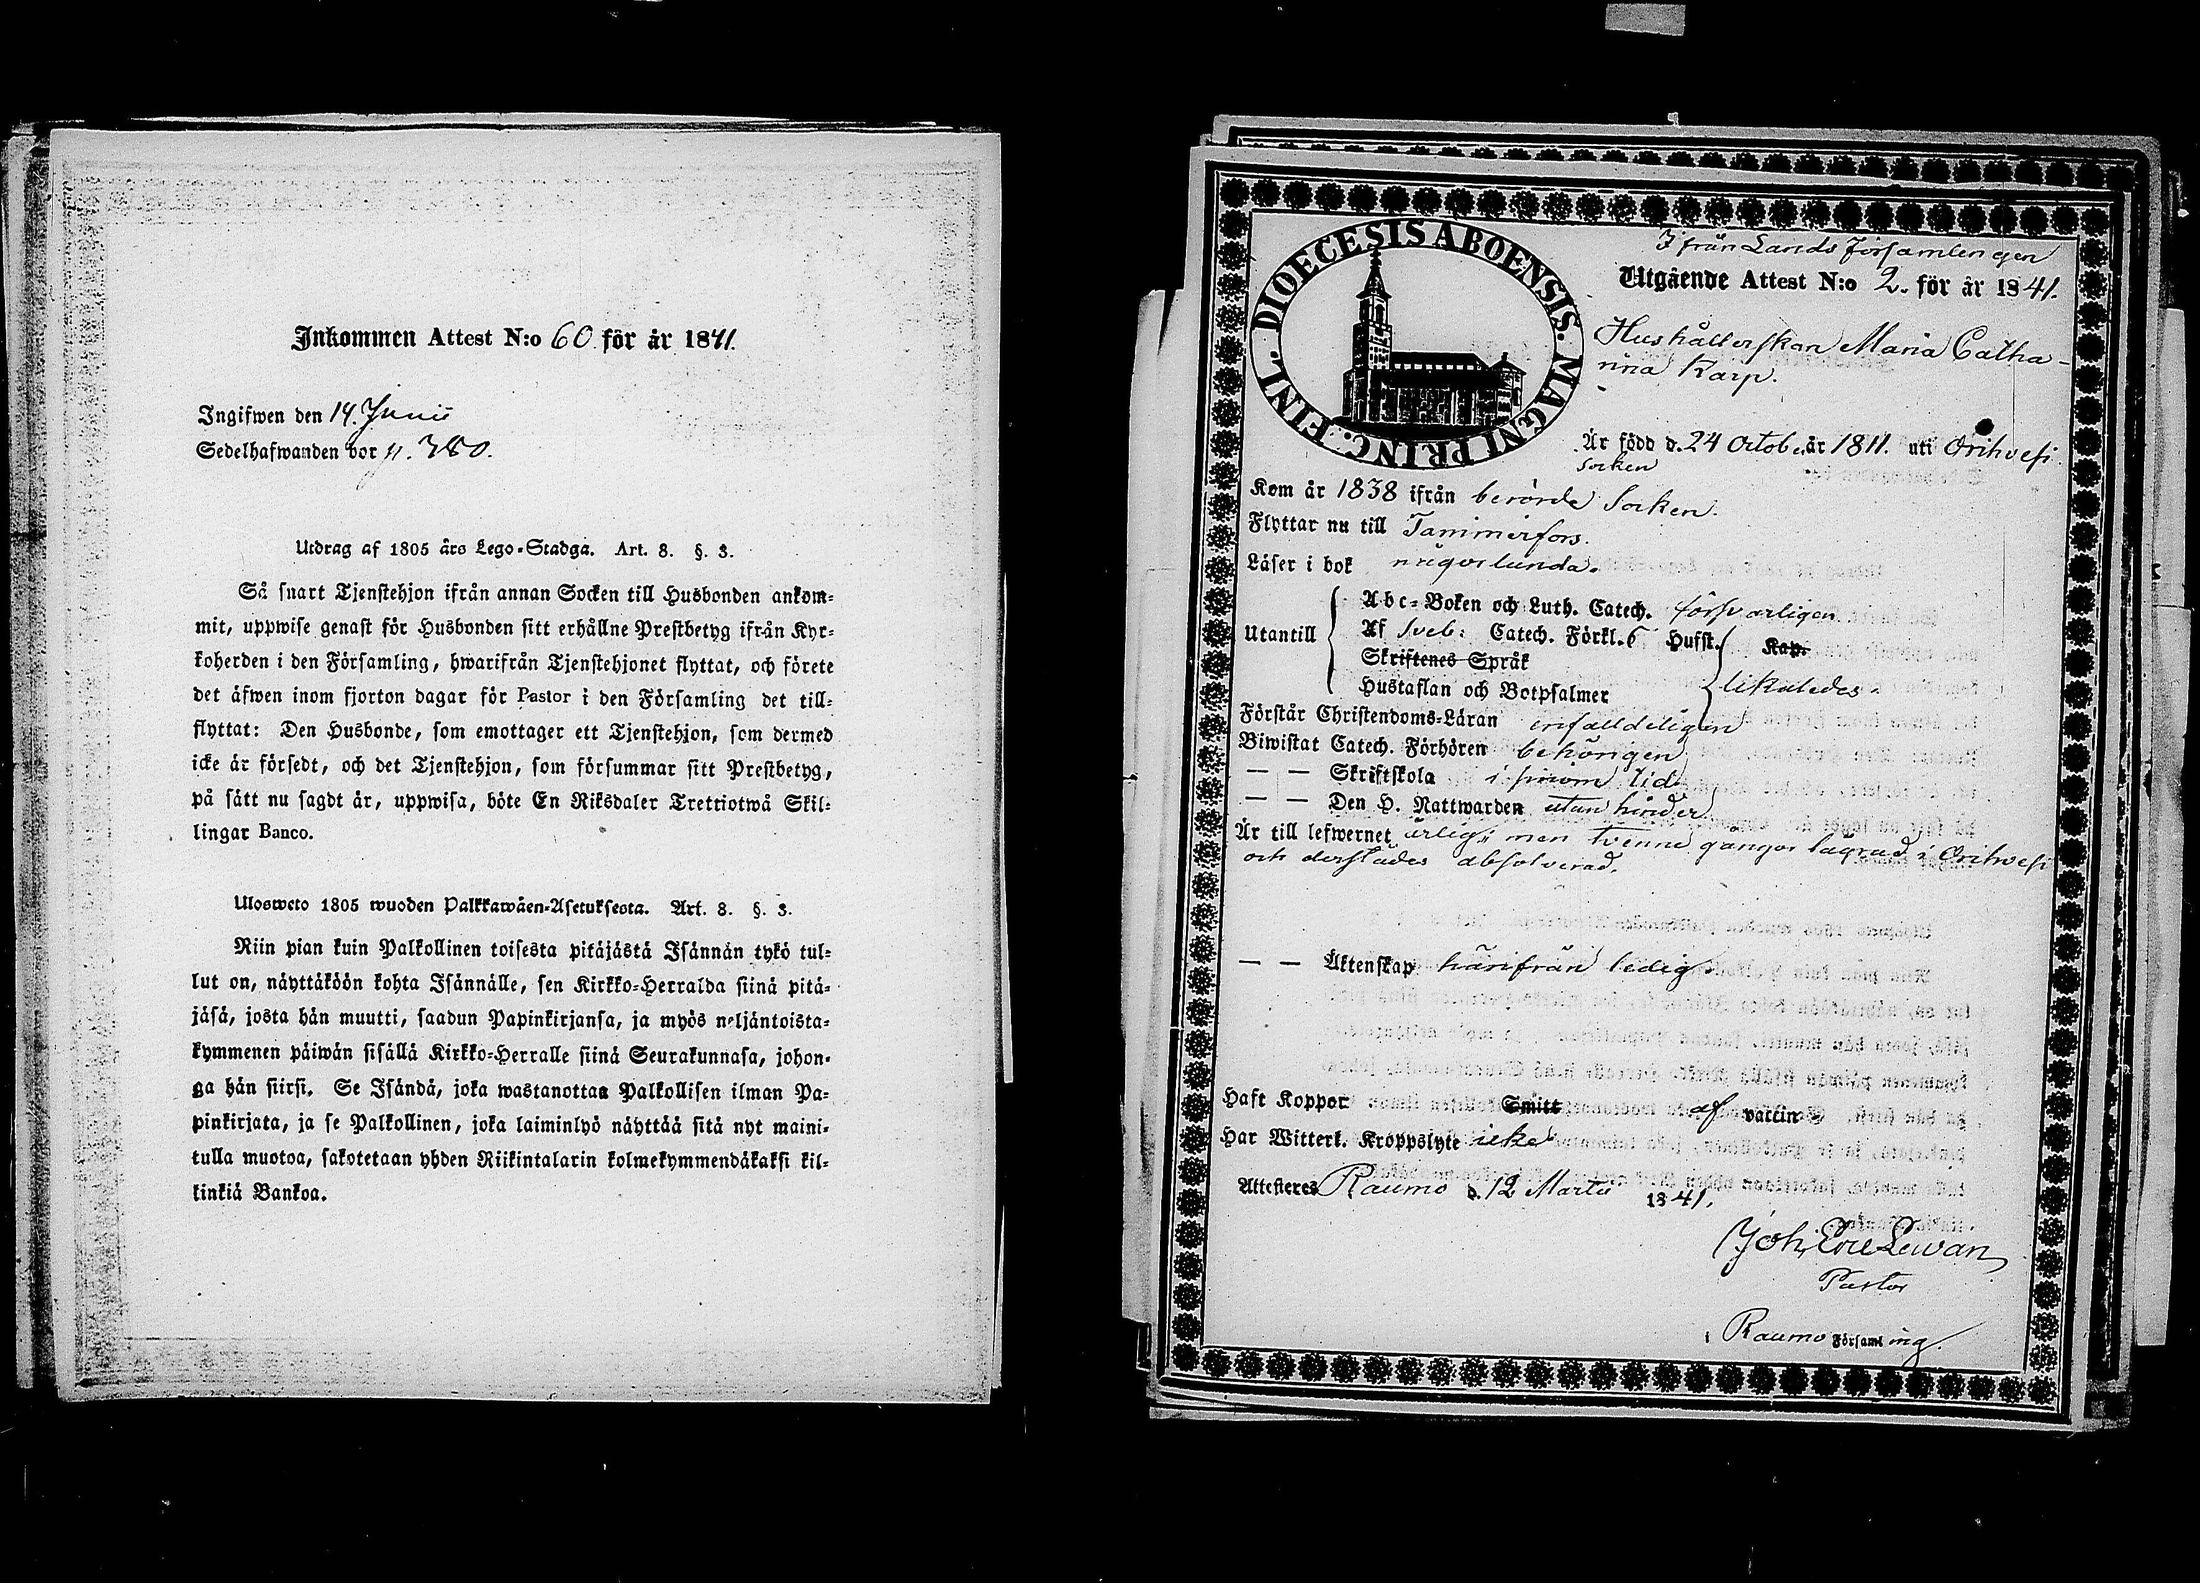 Inkommen Attest N:o 60. för år 1841.
Ingifwen den 14. Junii
Sedelhafwanden bor p. 380.
Utdrag af 1805 års Lego-Stadga. Art. 8. §. 3.
Så snart Tjenstehjon ifrån annan Socken till Husbonden ankom-
mit, uppwise genast för Husbonden sitt erhållne Prestbetyg ifrån Kyr-
koherden i den Församling, hwarifrån Tjenstehjonet flyttat, och förete
det äfwen inom fjorton dagar för Pastor i den Församling det till-
flyttat: Den Husbonde, som emottager ett Tjenstehjon, som dermed
icke är försedt, och det Tjenstehjon, som försummar sitt Prestbetyg,
på sätt nu sagdt är, uppwisa, böte En Riksdaler Trettiotwå Skil-
lingar Banco.
Ulosweto 1805 wuoden Palkkawäen-Asetuksesta. Art. 8. §. 3.
Niin pian kuin Palkollinen toisesta pitäjästä Isännän tykö tul-
lut on, näyttäköön kohta Isännälle, sen Kirkko-Herralda siinä pitä-
jäsä, josta hän muutti, saadun Papinkirjansa, ja myös neljäntoista-
kymmenen päiwän sisällä Kirkko-Herralle siinä Seurakunnasa, johon-
ga hän siirsi. Se Isändä, joka wastanottaa Palkollisen ilman Pa-
pinkirjata, ja se Palkollinen, joka laiminlyö näyttää sitä nyt maini-
tulla muotoa, sakotetaan yhden Riikintalarin kolmekymmendäkaksi kil-
kinkiä Bankoa.
DIOECESIS ABOENSIS. MAGNI PRINC. FINL.
Ifrån Lands Församlingen
Utgående Attest N:o 2. för år 1841.
Hushållerskan Maria Catha-
rina Karp.
Är född d. 24 Octob. år 1811. uti Orihvesi
socken
Kom år 1838 ifrån berörde Socken.
Flyttar nu till Tammerfors.
Läser i bok någorlunda.
Utantill
Abc-Boken och Luth. Catech. försvarligen
Af Sveb: Catech. Förkl. 6 Hufst. Kap.
Skriftenes Språk
Hustaflan och Botpsalmer likaledes.
Förstår Christendoms-Läran enfalldeligen
Biwistat Catech. Förhören behörigen
— — Skriftskola i sinom tid
— — Den H. Nattwarden utan hinder
Är till lefwernet ärlig; men tvenne gångor lägrad i Orihvesi
och derstädes absolverad.
— — Äktenskap härifrån ledig.
Haft Koppor Smitt af vattin
Har Witterl. Kroppslyte icke
Attesteres Raumo d. 12 Martii 1841.
Joh. Eric Lewan
Pastor
i Raumo Församling.